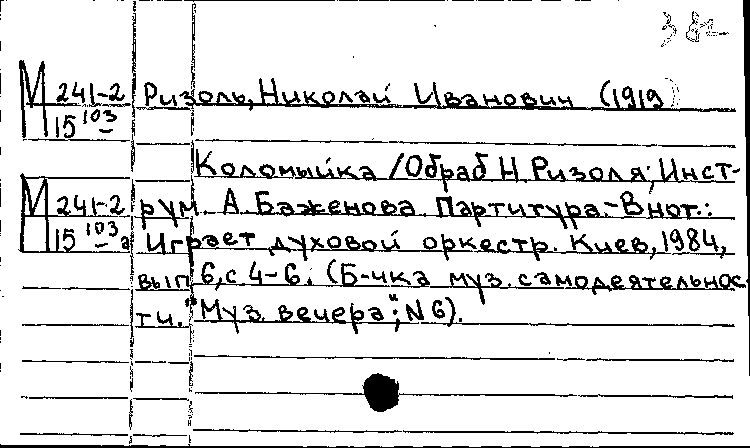 З 82
М 241-2 Ризоль, Николай Иванович (1919)
15 103
Коломыйка /Обраб Н. Ризоля; Инст-
М 241-2 рум. А. Баженова. Партитура.- В нот.:
15 103 а Играет духовой оркестр. Киев, 1984,
вып 6, с 4-6. (Б-чка муз. самодеятельнос
ти. "Муз. вечера"; N 6).